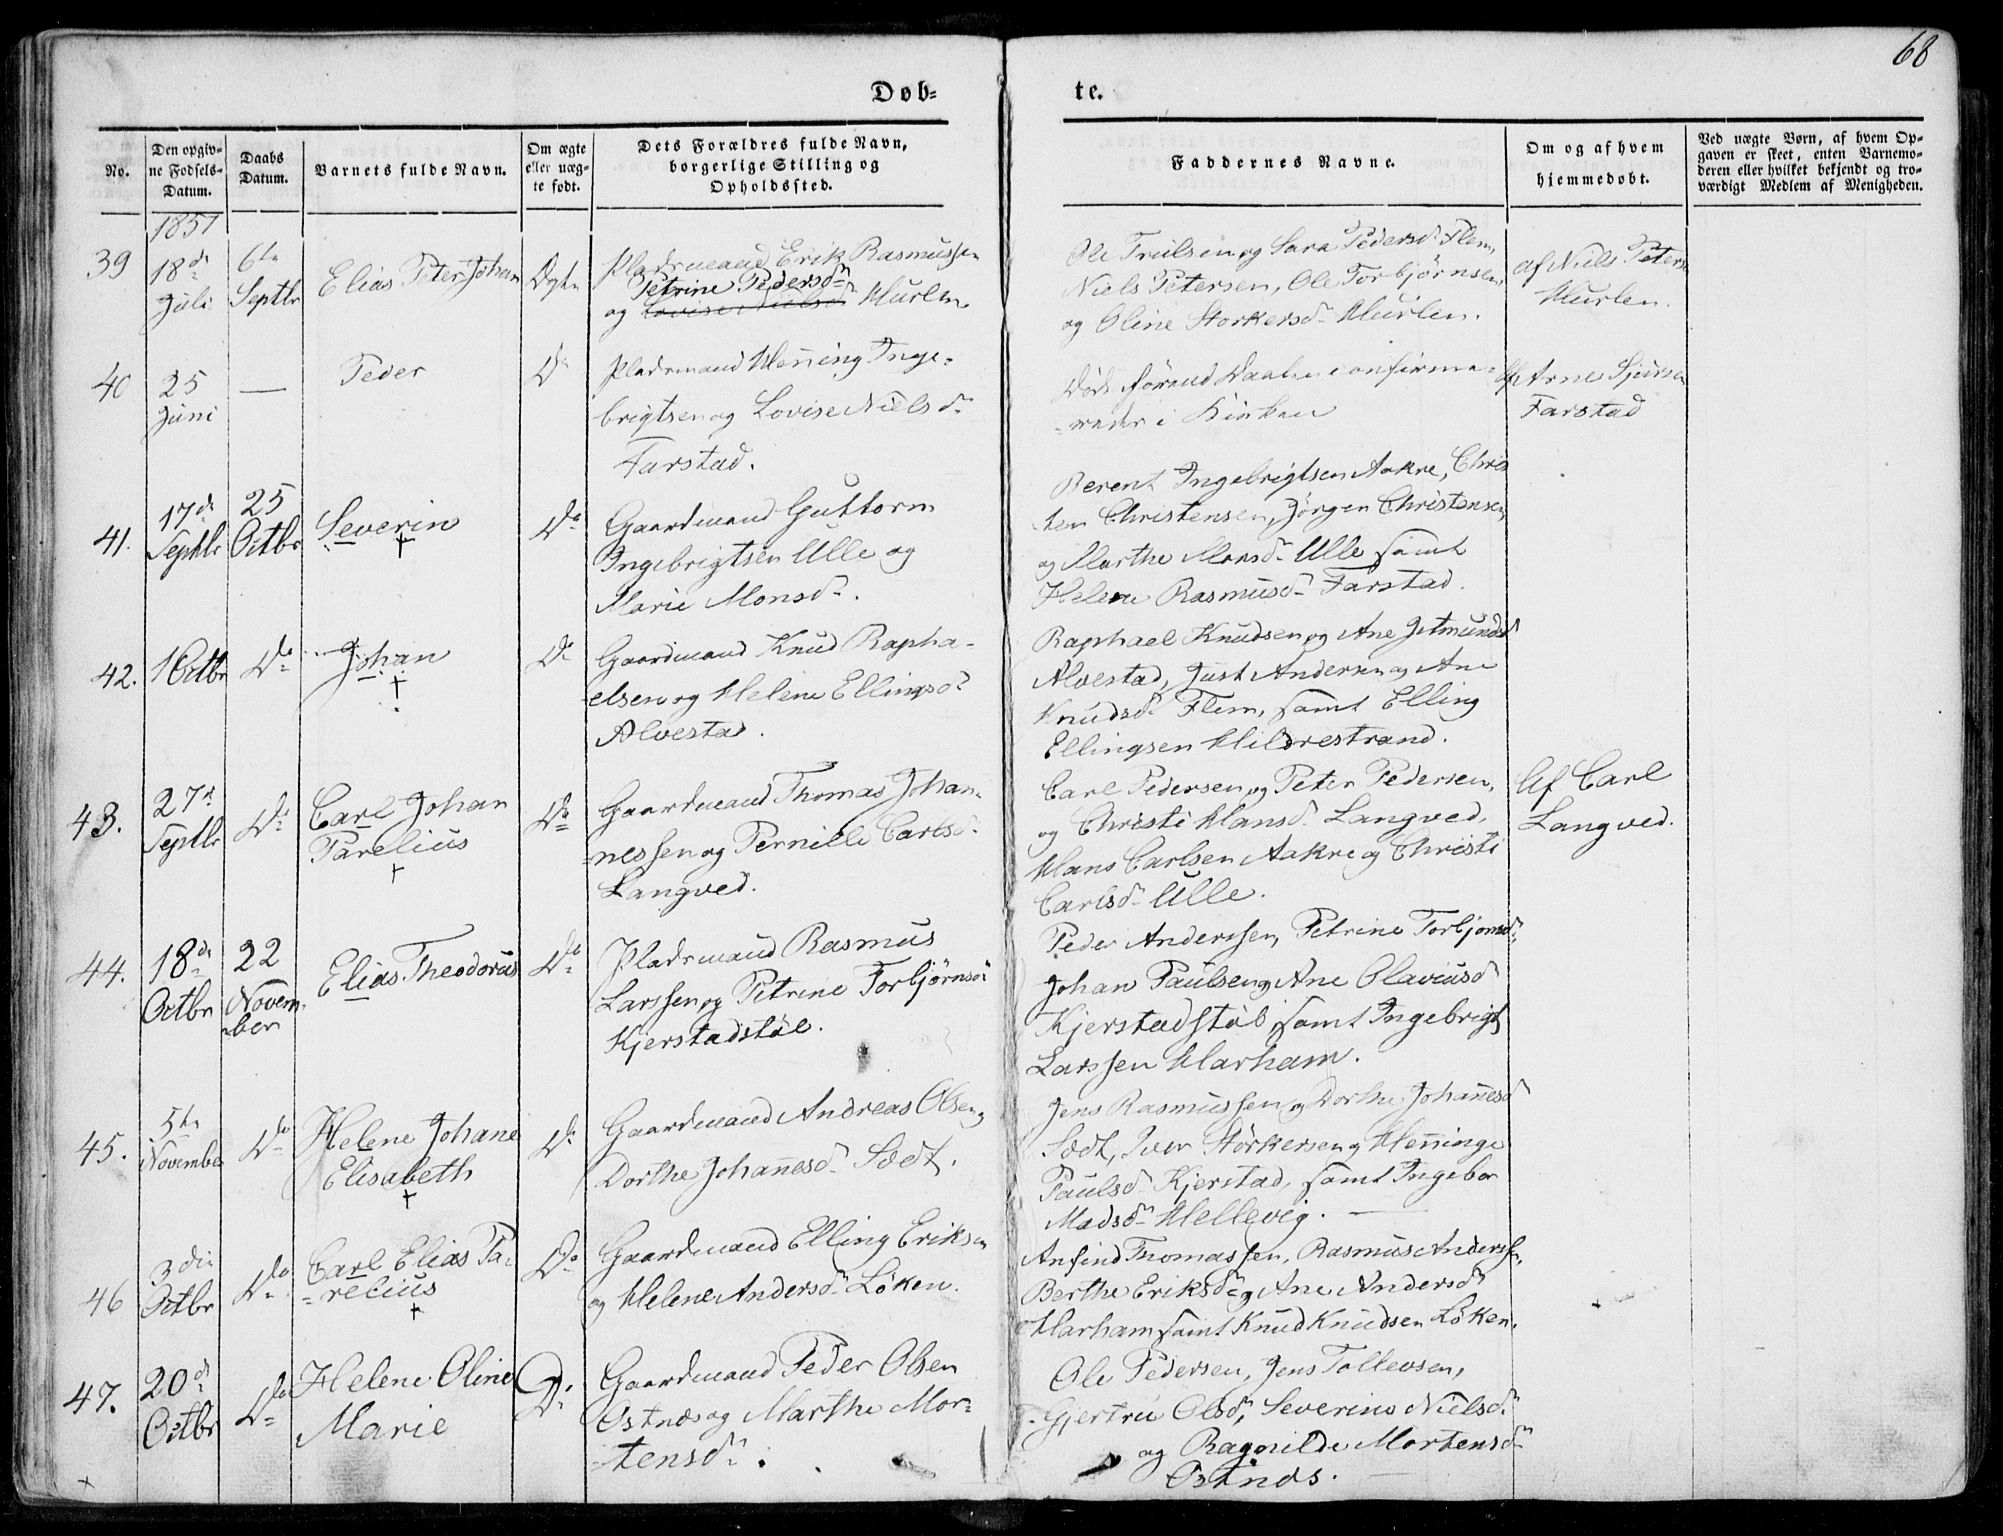 68
Døb-
te.
No.
Den opgiv-
ne Fødsels-
Datum.
Daabs
Datum.
Barnets fulde Navn.
Om ægte
eller uæg-
te født.
Dets Forældres fulde Navn,
borgerlige Stilling og
Opholdssted.
Faddernes Navne.
Om og af hvem
hjemmedøbt.
Ved uægte Børn, af hvem Op-
gaven er skeet, enten Barnemo-
deren eller hvilket bekjendt og tro-
værdigt Medlem af Menigheden.
1857
39
18de
Juli
6te
Septbr
Elias Peter Johan
Ægte
Pladsmand Erik Rasmussen
Petrine Pedersdr
og Lovise Nielsd Hurlen
Ole Trulsen og Sara Pedersdr Flem,
Niels Petersen, Ole Torbjørnsen,
og Oline Storkersdr Hurlen.
af Niels Petersen
Hurlen.
40
25
Juni
—
Peder
Do
Pladsmand Henning Inge-
brigtsen og Lovise Nielsdr
Farstad.
Døde førend Daaben confirme-
redes i Kirken
Af Arne Sjursen
Farstad
41.
17de
Septbr
25
Octbr
Severin
+
Do
Gaardmand Guttorm
Ingebrigtsen Ulle og
Marie Monsdr.
Berent Ingebrigtsen Aakre, Chris
ten Christensen, Jørgen Christensen,
og Marthe Monsdr Ulle samt
Helene Rasmusdr Farstad.
42.
1 Octbr
Do
Johan
+
Do
Gaardmand Knud Rapha-
elsen og Helene Ellingsdr
Alvestad.
Raphael Knudsen og Ane Jetmundsd
Alvestad, Just Andersen og Ane
Knudsdr Flem, samt Elling
Ellingsen Hildrestrand.
43.
27de
Septbr
Do
Carl Johan
Parelius
+
Do
Gaardmand Thomas Johan-
nessen og Pernille Carlsdr
Langved.
Carl Pedersen og Peter Pedersen,
og Christi Hansdr Langved,
Hans Carlsen Aakre og Christi
Carlsdr Ulle.
Af Carl
Langved.
44.
18de
Octbr
22
Novem-
ber
Elias Theodorus
Do
Pladsmand Rasmus
Larssen og Petrine Torbjørnsdr
Kjerstadstøl.
Peder Anderssen, Petrine Torbjørnsdr
Johan Paulsen og Ane Olaviusd
Kjerstadstøl samt Ingebrigt
Larssen Harham.
45.
5te
November
Do
Helene Johane
Elisabeth
+
Do
Gaardmand Andreas Olsen og
Dorthe Johannesdr Sædt.
Jens Rasmussen og Dorthe Johannesd
Sædt, Iver Størkersen og Henninge
Paulsdr Kjerstad, samt Ingebor
Madsdr Hellevig. —
46
3die
Octbr
Do
Carl Elias Pa-
relius
+
Do
Gaardmand Elling Eriksen
og Helene Andersdr Løken.
Anfind Thomassen, Rasmus Anderssen,
Berthe Eriksdr og Ane Andersdr
Harham samt Knud Knudsen Løken.
47.
20de
Octbr
Do
Helene Oline
Marie
Do
Gaardmand Peder Olsen
Østnæs og Marthe Mor-
tensdr.
Ole Pedersen, Jens Tollevsen,
Gjertrü Olsdr, Severine Nielsdr
og Ragnilde Mortensdr
Østnæs.
+